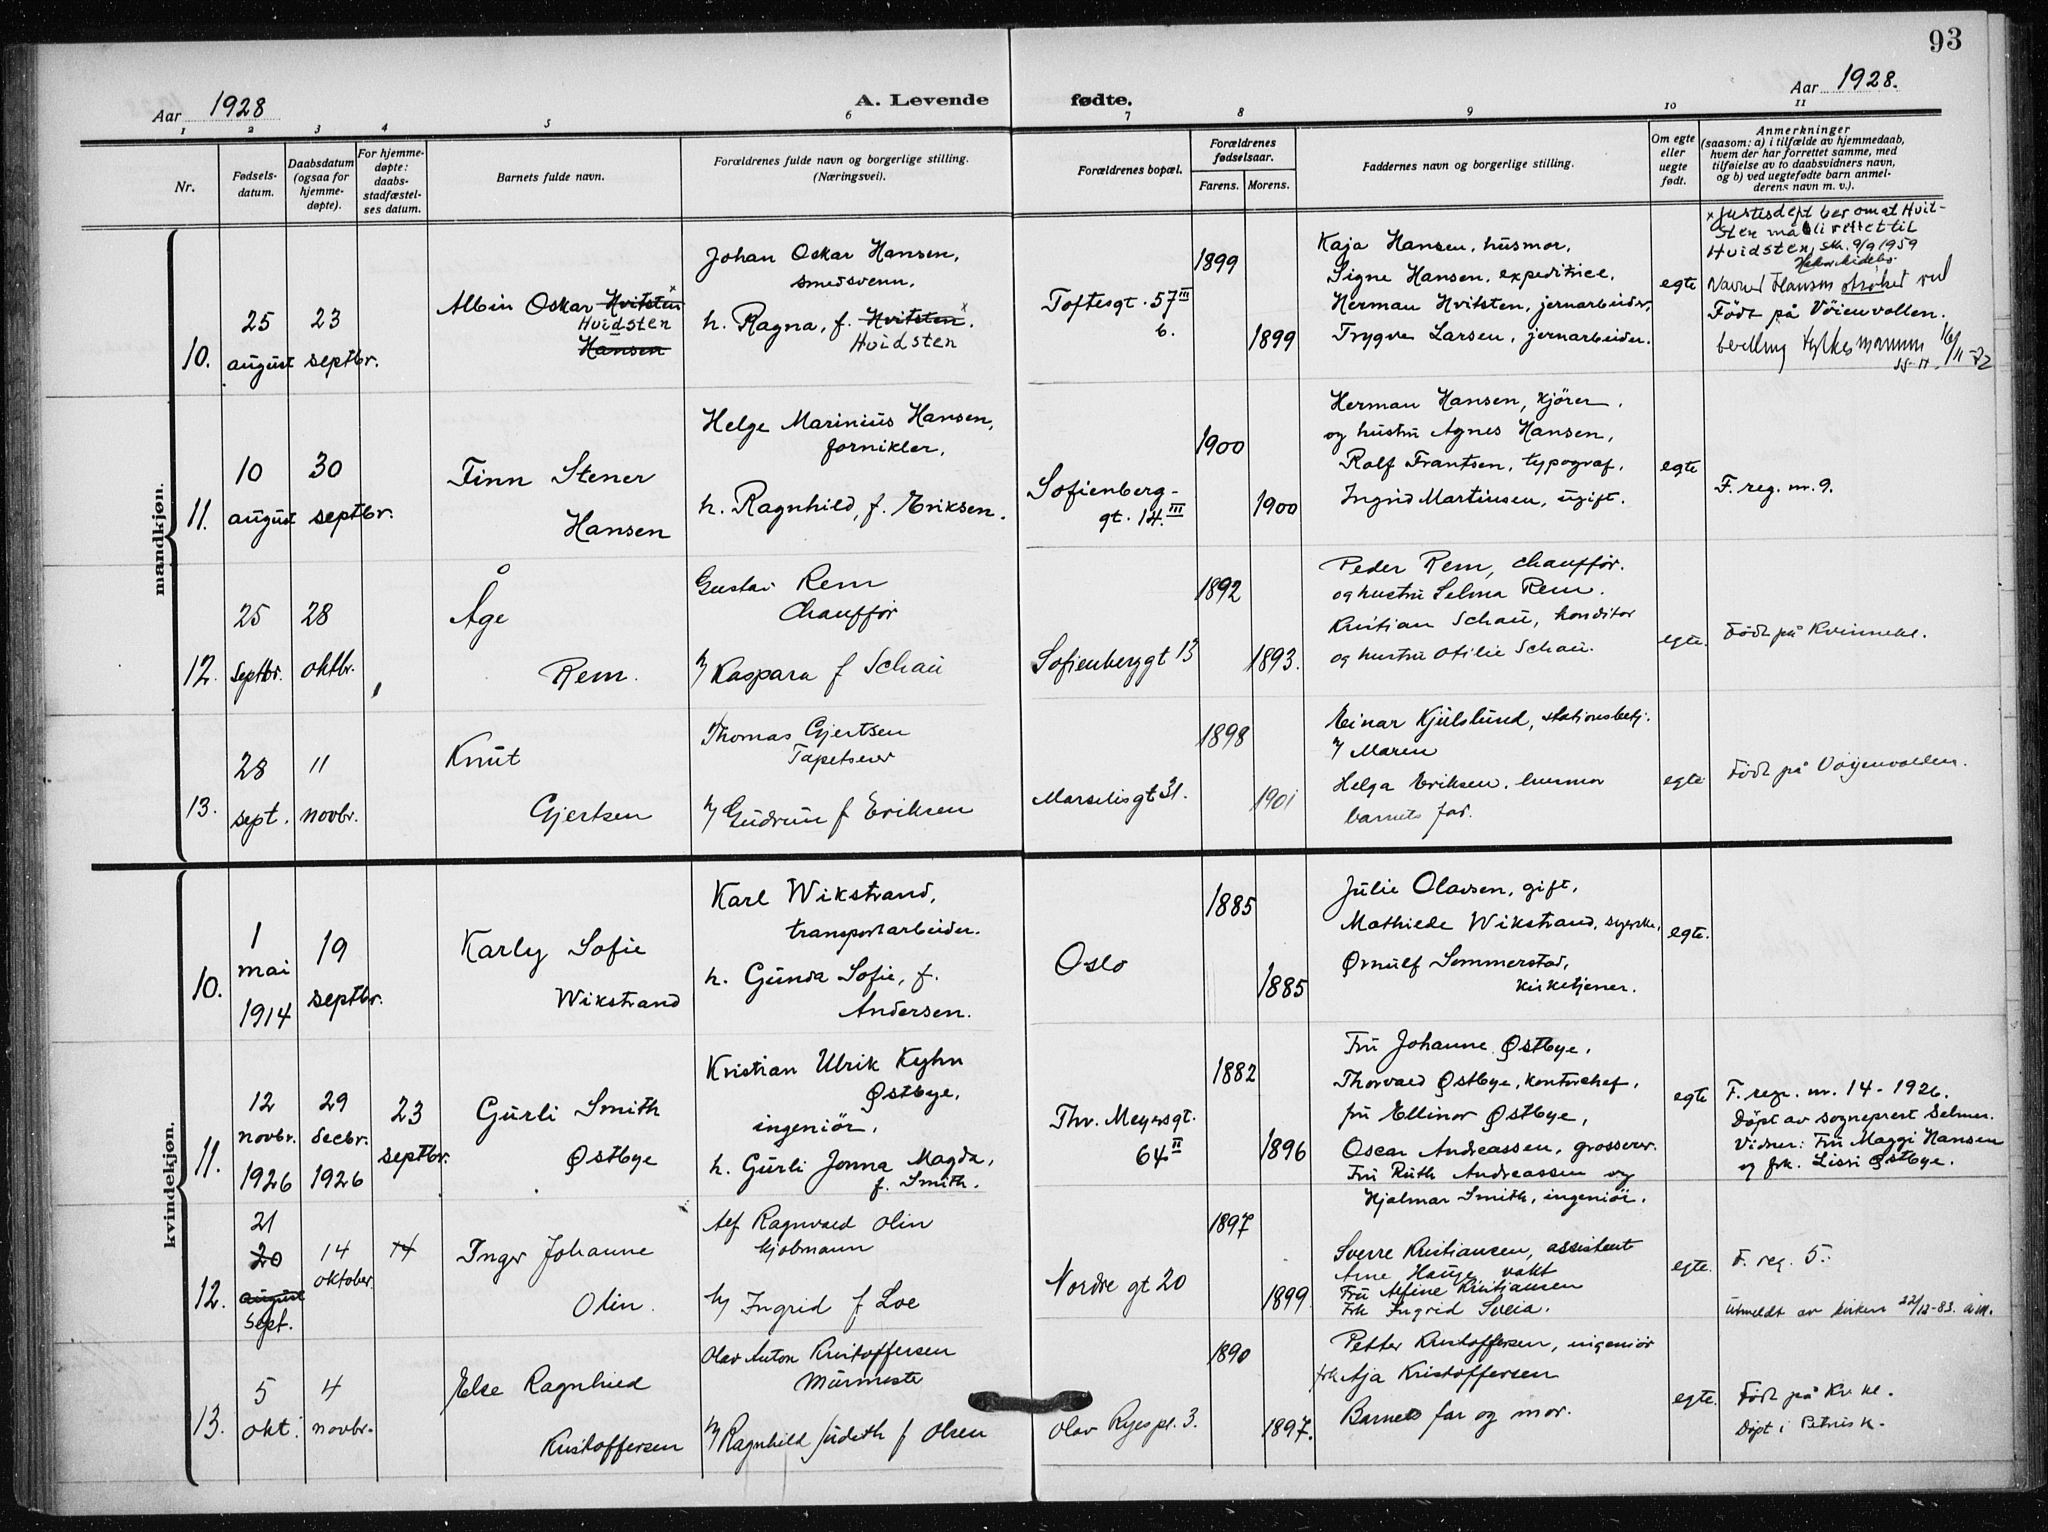 93
Aar 1928
A. Levende fødte.
Aar 1928.
1 2 3 4 5 6 7 8 9 10 11
Nr.
Fødsels-
datum.
Daabsdatum
(ogsaa for
hjemme-
døpte).
For hjemme-
døpte:
daabs-
stadfæstel-
ses datum.
Barnets fulde navn.
Forældrenes fulde navn og borgerlige stilling.
(Næringsvei).
Forældrenes bopæl.
Forældrenes
fødselsaar.
Farens. Morens.
Faddernes navn og borgerlige stilling.
Om egte
eller
uegte
født.
Anmerkninger
(saasom: a) i tilfælde av hjemmedaab,
hvem der har forrettet samme, med
tilføielse av to daabsvidners navn,
og b) ved uegtefødte barn anmel-
derens navn m. v.).
mandkjøn.
10.
25
august
23
septbr.
Albin Oskar Hvitsten
Hvidsten
Hansen
Johan Oskar Hansen,
smedsvenn.
h. Ragna, f. Hvitsten.
Hvidsten
Toftesgt. 57 III
b.
1899
1899
Kaja Hansen, husmor,
Signe Hansen, expeditrice,
Herman Hvitsten, jernarbeider,
Trygve Larsen, jernarbeider.
egte
x Justisdept ber om at Hvit-
sten må bli rettet til
Hvidsten, skr. 9/9 1959
Navnet Hansen strøket ved
Født på Vöienvollen.
bevilling fylkesmannen
11.
10
august
30
septbr.
Finn Stener
Hansen
Helge Marinius Hansen,
fornikler,
h. Ragnhild, f. Eriksen.
Sofienberg-
gt. 14. III
1900
1900
Herman Hansen, kjörer.
og hustru Agnes Hansen,
Rolf Frantsen, typograf,
Ingrid Martinsen, ugift.
egte
F. reg. nr. 9.
12.
25
septbr.
28
oktbr.
Åge
Rem.
Gustav Rem
Chaufför
h/ Kaspara f Schau
Sofienberggt 13
1892
1893.
Peder Rem, chaufför.
og hustru Selma Rem.
Kristian Schau, konditor
og hustru Otilie Schau.
egte.
Född på Kvinnekl.
13.
28
sept.
11
novbr.
Knut
Gjertsen
Thomas Gjertsen
Tapetserer
h/ Gudrun f Eriksen
Marselisgt 31.
1898
1901
Einar Kjulslund, stationsbetj.
h/ Maren
Helga Eriksen, husmor
barnets far.
egte
Född på Vöyenvollen.
kvindekjøn.
10.
1
mai
1914
19
septbr.
Karly Sofie
Wikstrand
Karl Wikstrand,
transportarbeider.
h. Gunda Sofie, f.
Andersen.
Oslo
1885
1885
Julie Olavsen, gift,
Mathilde Wikstrand, syerske,
Ørnulf Sommerstad,
kirketjener.
egte.
11.
12
novbr.
1926
29
decbr.
1926
23
septbr.
Gurli Smith
Østbye
Kristian Ulrik Kyhn
Østbye,
ingeniör,
h. Gurli Jonna Magda,
f. Smith.
Thv. Meyersgt.
64 II
1882
1896
Fru Johanne Østbye,
Thorvald Østbye, kontorchef,
fru Ellinor Østbye,
Oscar Andreassen, grosserer.
Fru Ruth Andreassen og
Hjalmar Smith, ingeniör.
egte
F. reg. nr. 14-1926.
Döpt av sogneprest Selmer.
Vidner: Fru Maggi Hansen
og frk. Lissi Østbye.
12.
21
20
august
sept.
14
oktober
14
Inger Johanne
Olin.
Alf Ragnvald Olin
kjöbmann
h/ Ingrid f Loe
Nordre gt 20
1897
1899
Sverre Kristiansen, assistent
Arne Hauge, vakt
Fru Alfine Kristiansen
Frk Ingrid Sveia.
egte.
F. reg. 5.
utmeldt av kirken 22/12-83.
13.
5
okt.
4
novbr.
Else Ragnhild
Kristoffersen
Olav Anton Kristoffersen
Murmester
h/ Ragnhild Judith f Olsen
Olav Ryespl. 3.
1890
1897.
Petter Kristoffersen, ingeniör
frk Aja Kristoffersen
Barnets far og mor.
egte.
Född på Kv. kl.
Döpt i Petrus k.